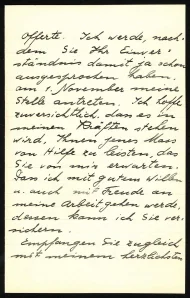 Offerte. Ich werde, nach-
dem Sie Ihr Einver-
ständnis damit ja schon
ausgesprochen haben,
am 1. November meine
Stelle antreten. Ich hoffe
zuversichtlich, dass es in
meinen Kräften stehen
wird, Ihnen jenes Mass
von Hilfe zu leisten, das
Sie von mir erwarten.
Dass ich mit gutem Willen
u. auch mit Freude an
meine Arbeit gehen werde,
dessen kann ich Sie ver-
sichern.
Empfangen Sie zugleich
mit meinem herzlichsten